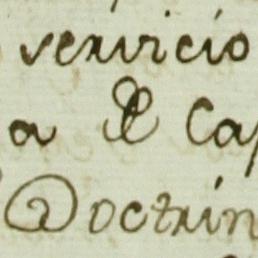 servicio
a el Cap
Doctrin